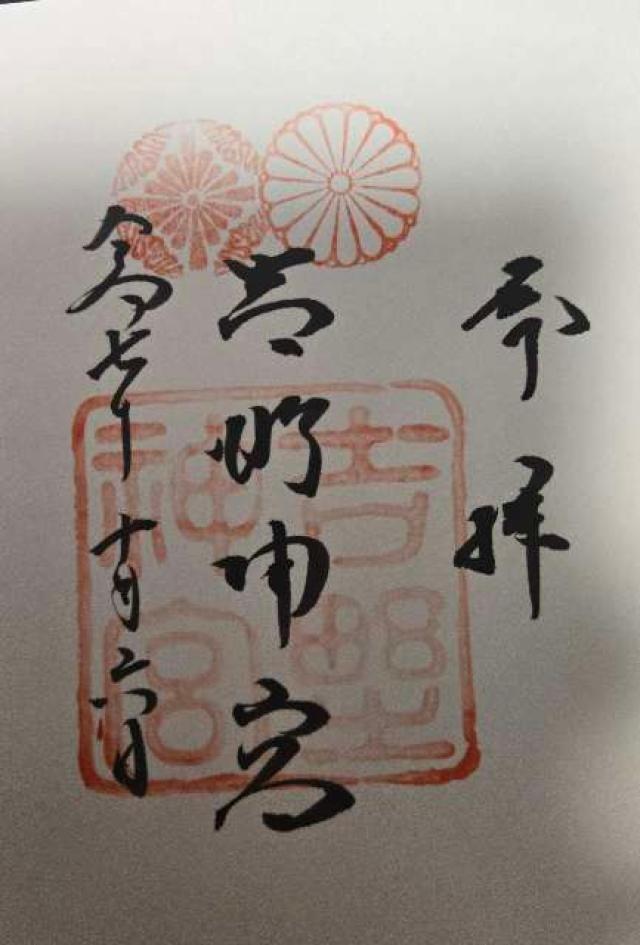 奉拝
吉野神宮
令七年十月二六日
吉野神宮